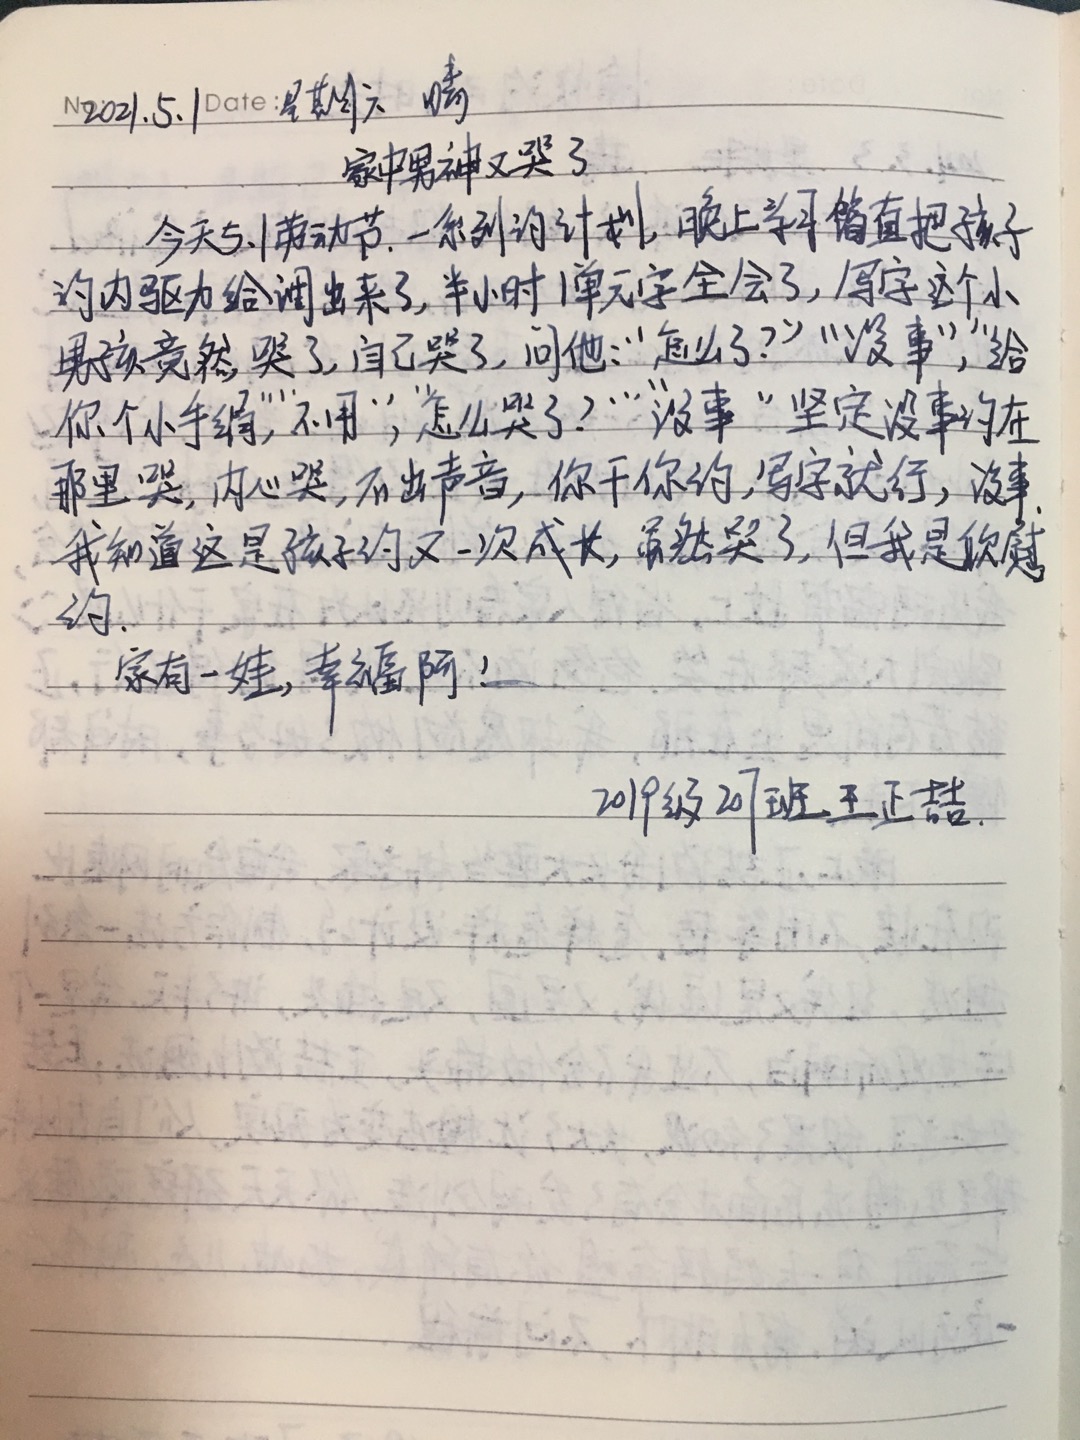 2021.5.1 Date: 星期六 晴
家中男神又哭了
今天5.1劳动节.一系列的计划,晚上学习简直把孩子
的内驱力给调出来了,半小时1单元字全会了,写字这个小
男孩竟然哭了,自己哭了,问他:“怎么了?”“没事”,“给
你个小手绢”“不用”,“怎么哭了?”“没事”坚定没事的在
那里哭,内心哭,不出声音,你干你的,写字就行,没事.
我知道这是孩子的又一次成长,虽然哭了,但我是欣慰
的.
家有一娃,幸福阿!
2019级207班王正喆.